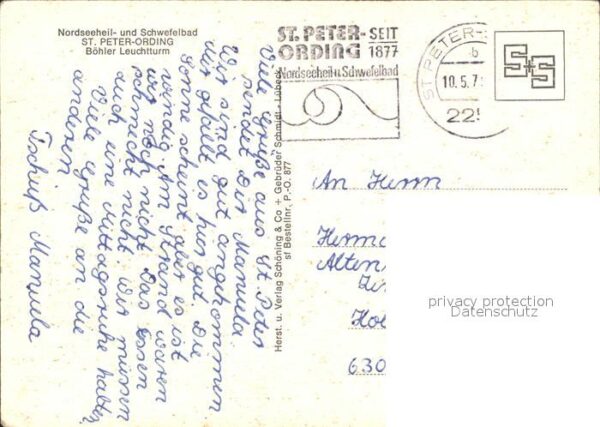 Nordseeheil- und Schwefelbad
ST. PETER-ORDING
Böhler Leuchtturm
Viele Grüße aus St. Peter
sendet Dir Manuela.
Wir sind gut angekommen
mir gefällt es hier gut. Die
Sonne scheint aber es ist
windig. Am Strand waren
wir noch nicht. Das Essen
schmeckt nicht. Wir müssen
auch eine Mittagsruhe halten.
Viele Grüße an die
anderen
Tschüß Manuela
Herst. u. Verlag Schöning & Co + Gebrüder Schmidt - Lübeck
sf Bestellnr. P.-O. 877
ST. PETER-
ORDING
SEIT
1877
Nordseeheil u Schwefelbad
ST. PETER-
b
10.5.7
225
S+S
An Herrn
Herma
Alten
630
privacy protection
Datenschutz